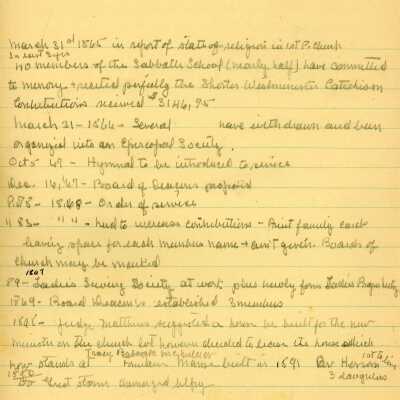 March 31st 1865 in report of state of religion in 1st P. Church
In last 2 yrs
40 members of the Sabbath School (nearly half) have committed
to memory + recited perfectly the Shorter Westminster Catechism
Contributions received $3146.95
March 31 - 1866 - Several have withdrawn and been
organized into an Episcopal Society.
Oct 5 67 - Hymnal to be introduced to service
Dec. 16, '67 - Board of Deacons proposed
P. 78 - 1868 - Order of services
" 83 - " " - had to increase contributions - Print family cards
leaving space for each members name + am't given. Boards of
church may be mailed
1869
89 - Ladies Sewing Society at work, plus newly form Ladies
1869 - Board Deacons established 3 members
Judge Matthews suggested a house be built for the new
minister on the church lot however decided to the house which
Tracy
now stands at Manse built in 1891 Rev
1st to live
3 daughters
Great storm damaged belfry